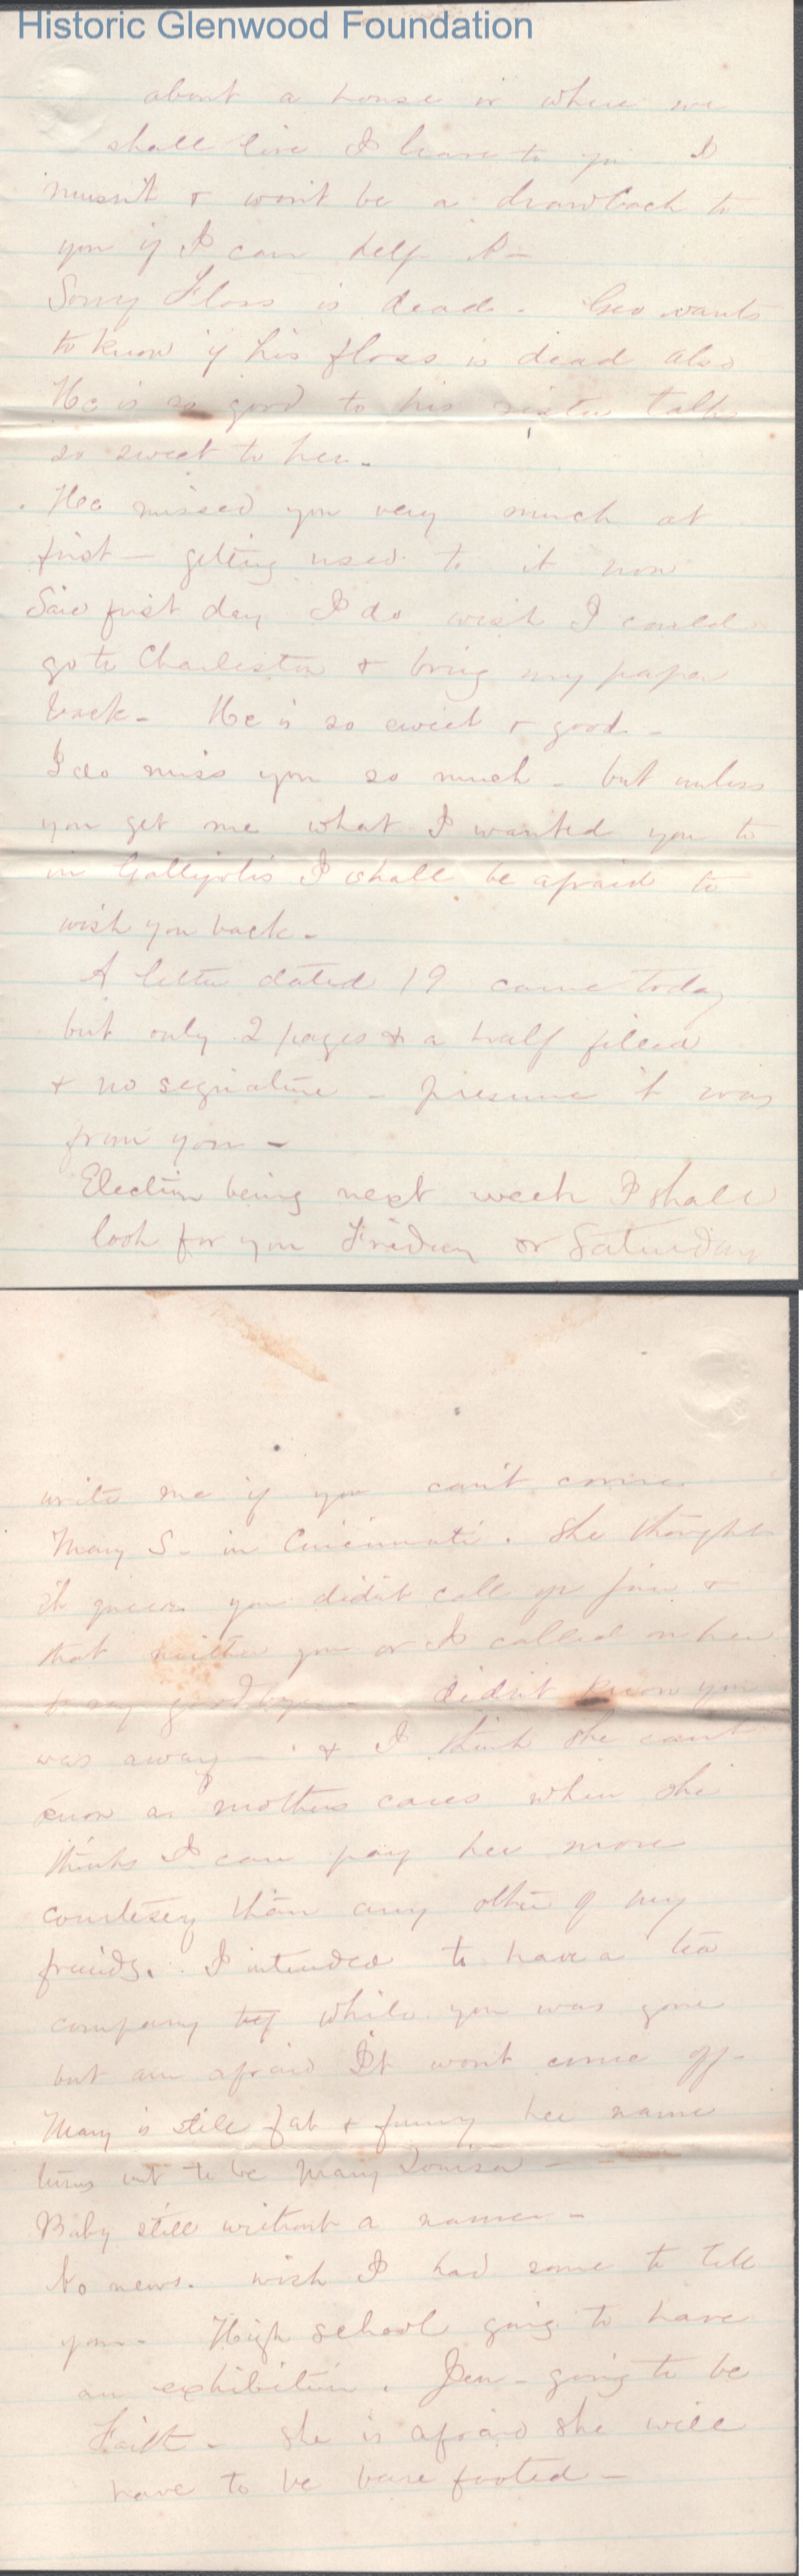 Historic Glenwood Foundation
about a house or where we
shall live I leave to you - I
musn't & won't be a drawback to
you if I can help it -
Sorry Floss is dead - Geo wants
to know if his floss is dead also
He is so good to his sister talks
so sweet to her -
He missed you very much at
first - getting used to it now
Said first day I do wish I could
go to Charleston & bring my papa
back - He is so sweet & good -
I do miss you so much - but unless
you get me what I wanted you to
in Gallipolis I shall be afraid to
wish you back -
A letter dated 19 came today
but only 2 pages & a half filled
& no segnature - presume it was
from you -
Election being next week I shall
look for you Friday or Saturday
write me if you can't come
Mary S - in Cincinnati. She thought
it queer you didn't call on &
that neither you or I called on her
to say good bye - didn't know you
was away - & I think she can't
know a mothers cares when she
thinks I can pay her more
courtesey than any other of my
friends. I intended to have a tea
company while you was gone
but am afraid It wont come off -
Mary is still fat & funny her name
turns out to be Mary Louisa -
Baby still without a name -
No news. wish I had some to tell
you - High school going to have
an exhibition. Jen - going to be
Faith - she is afraid she will
have to be bare footed -